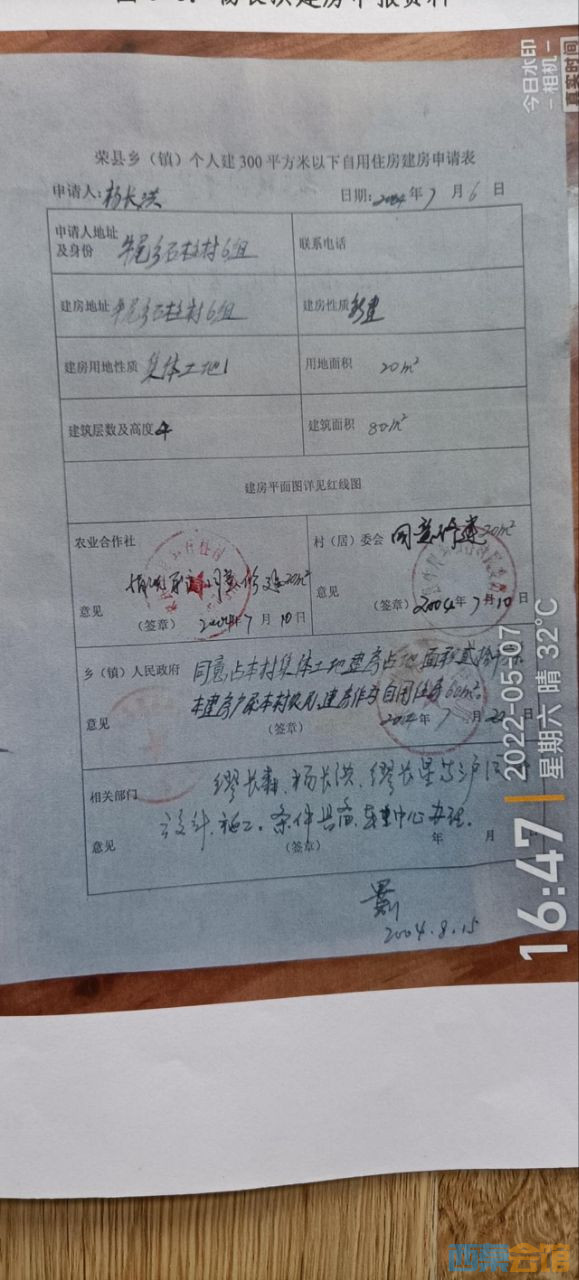 杨长洪建房申报资料
荣县乡（镇）个人建300平方米以下自用住房建房申请表
申请人：杨长洪 日期：2004年7月6日
申请人地址及身份 牛尾乡石柱村6组 联系电话
建房地址 牛尾乡石柱村6组 建房性质 新建
建房用地性质 集体土地 用地面积 20m²
建筑层数及高度 4 建筑面积 80m²
建房平面图详见红线图
农业合作社 村（居）委会 同意修建20m²
同意修建20m²
意见 意见
（签章）2004年7月10日 （签章）2004年7月10日
乡（镇）人民政府 同意占本村集体土地建房占地面积贰拾
本建房户系本村农民，建房作为自用住房
意见 （签章） 2004年7月 日
相关部门 缪长森、杨长洪、缪长星
意见 设计、施工。条件具备 中心办理。
（签章） 年 月
2004.8.15
今日水印
相机
真实时间
16:47
2022-05-07
星期六 晴 32℃
西祠会馆